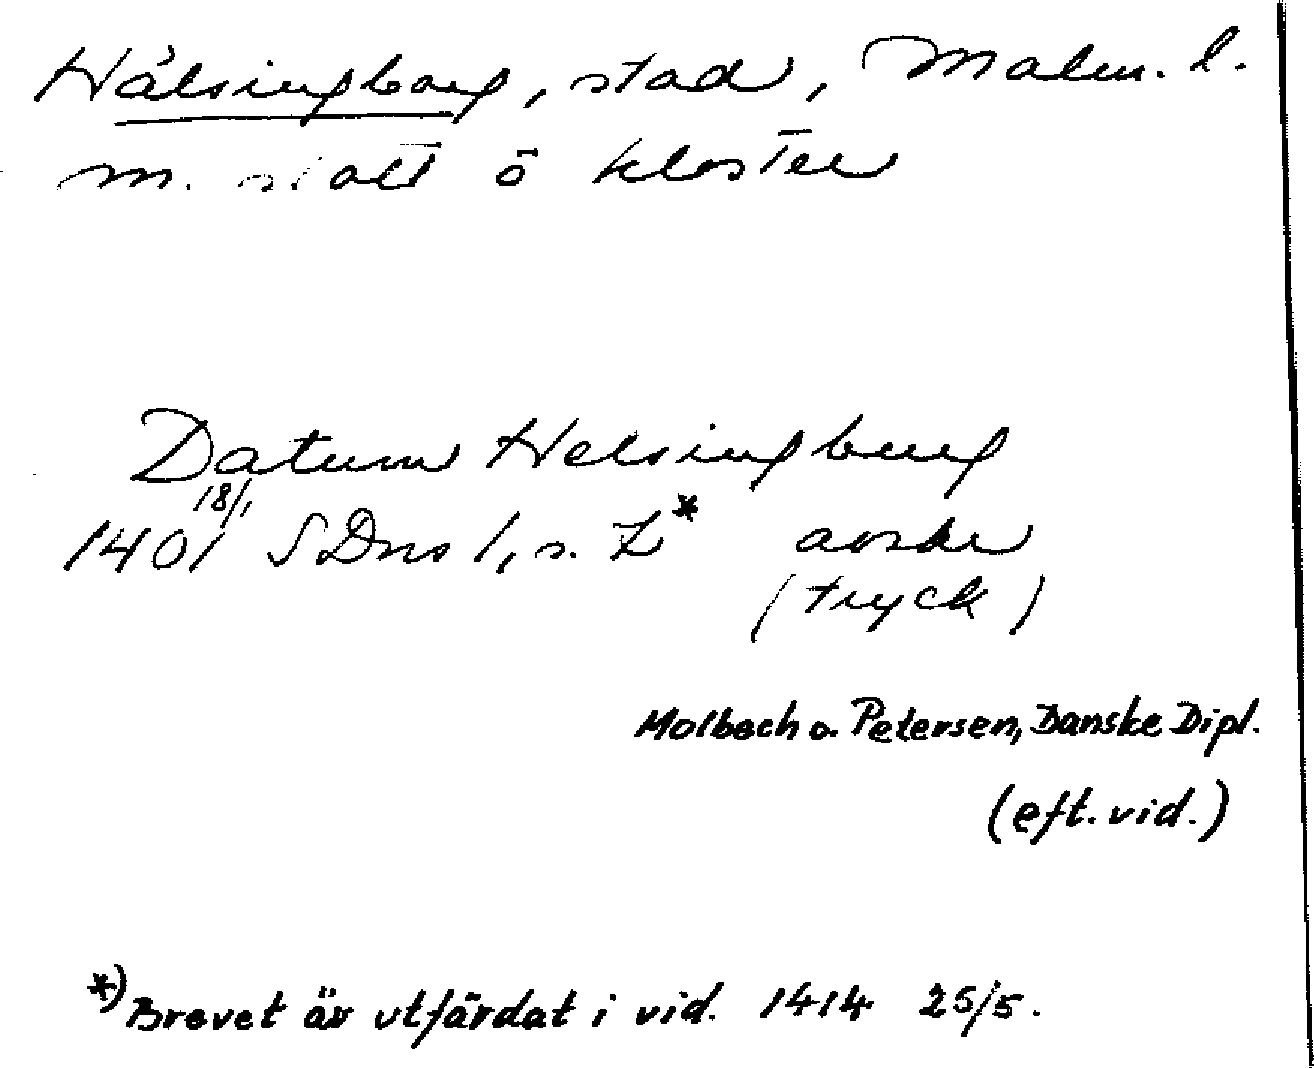 Hälsingborg, stad, Malm. l.
m. slott o kloster
Datum Helsingburg
1401 18/1 SDns 1, s. 7* avskr
(tryck)
Molbech o. Petersen, Danske Dipl.
(eft. vid.)
*) Brevet är utfärdat i vid. 1414 25/5.